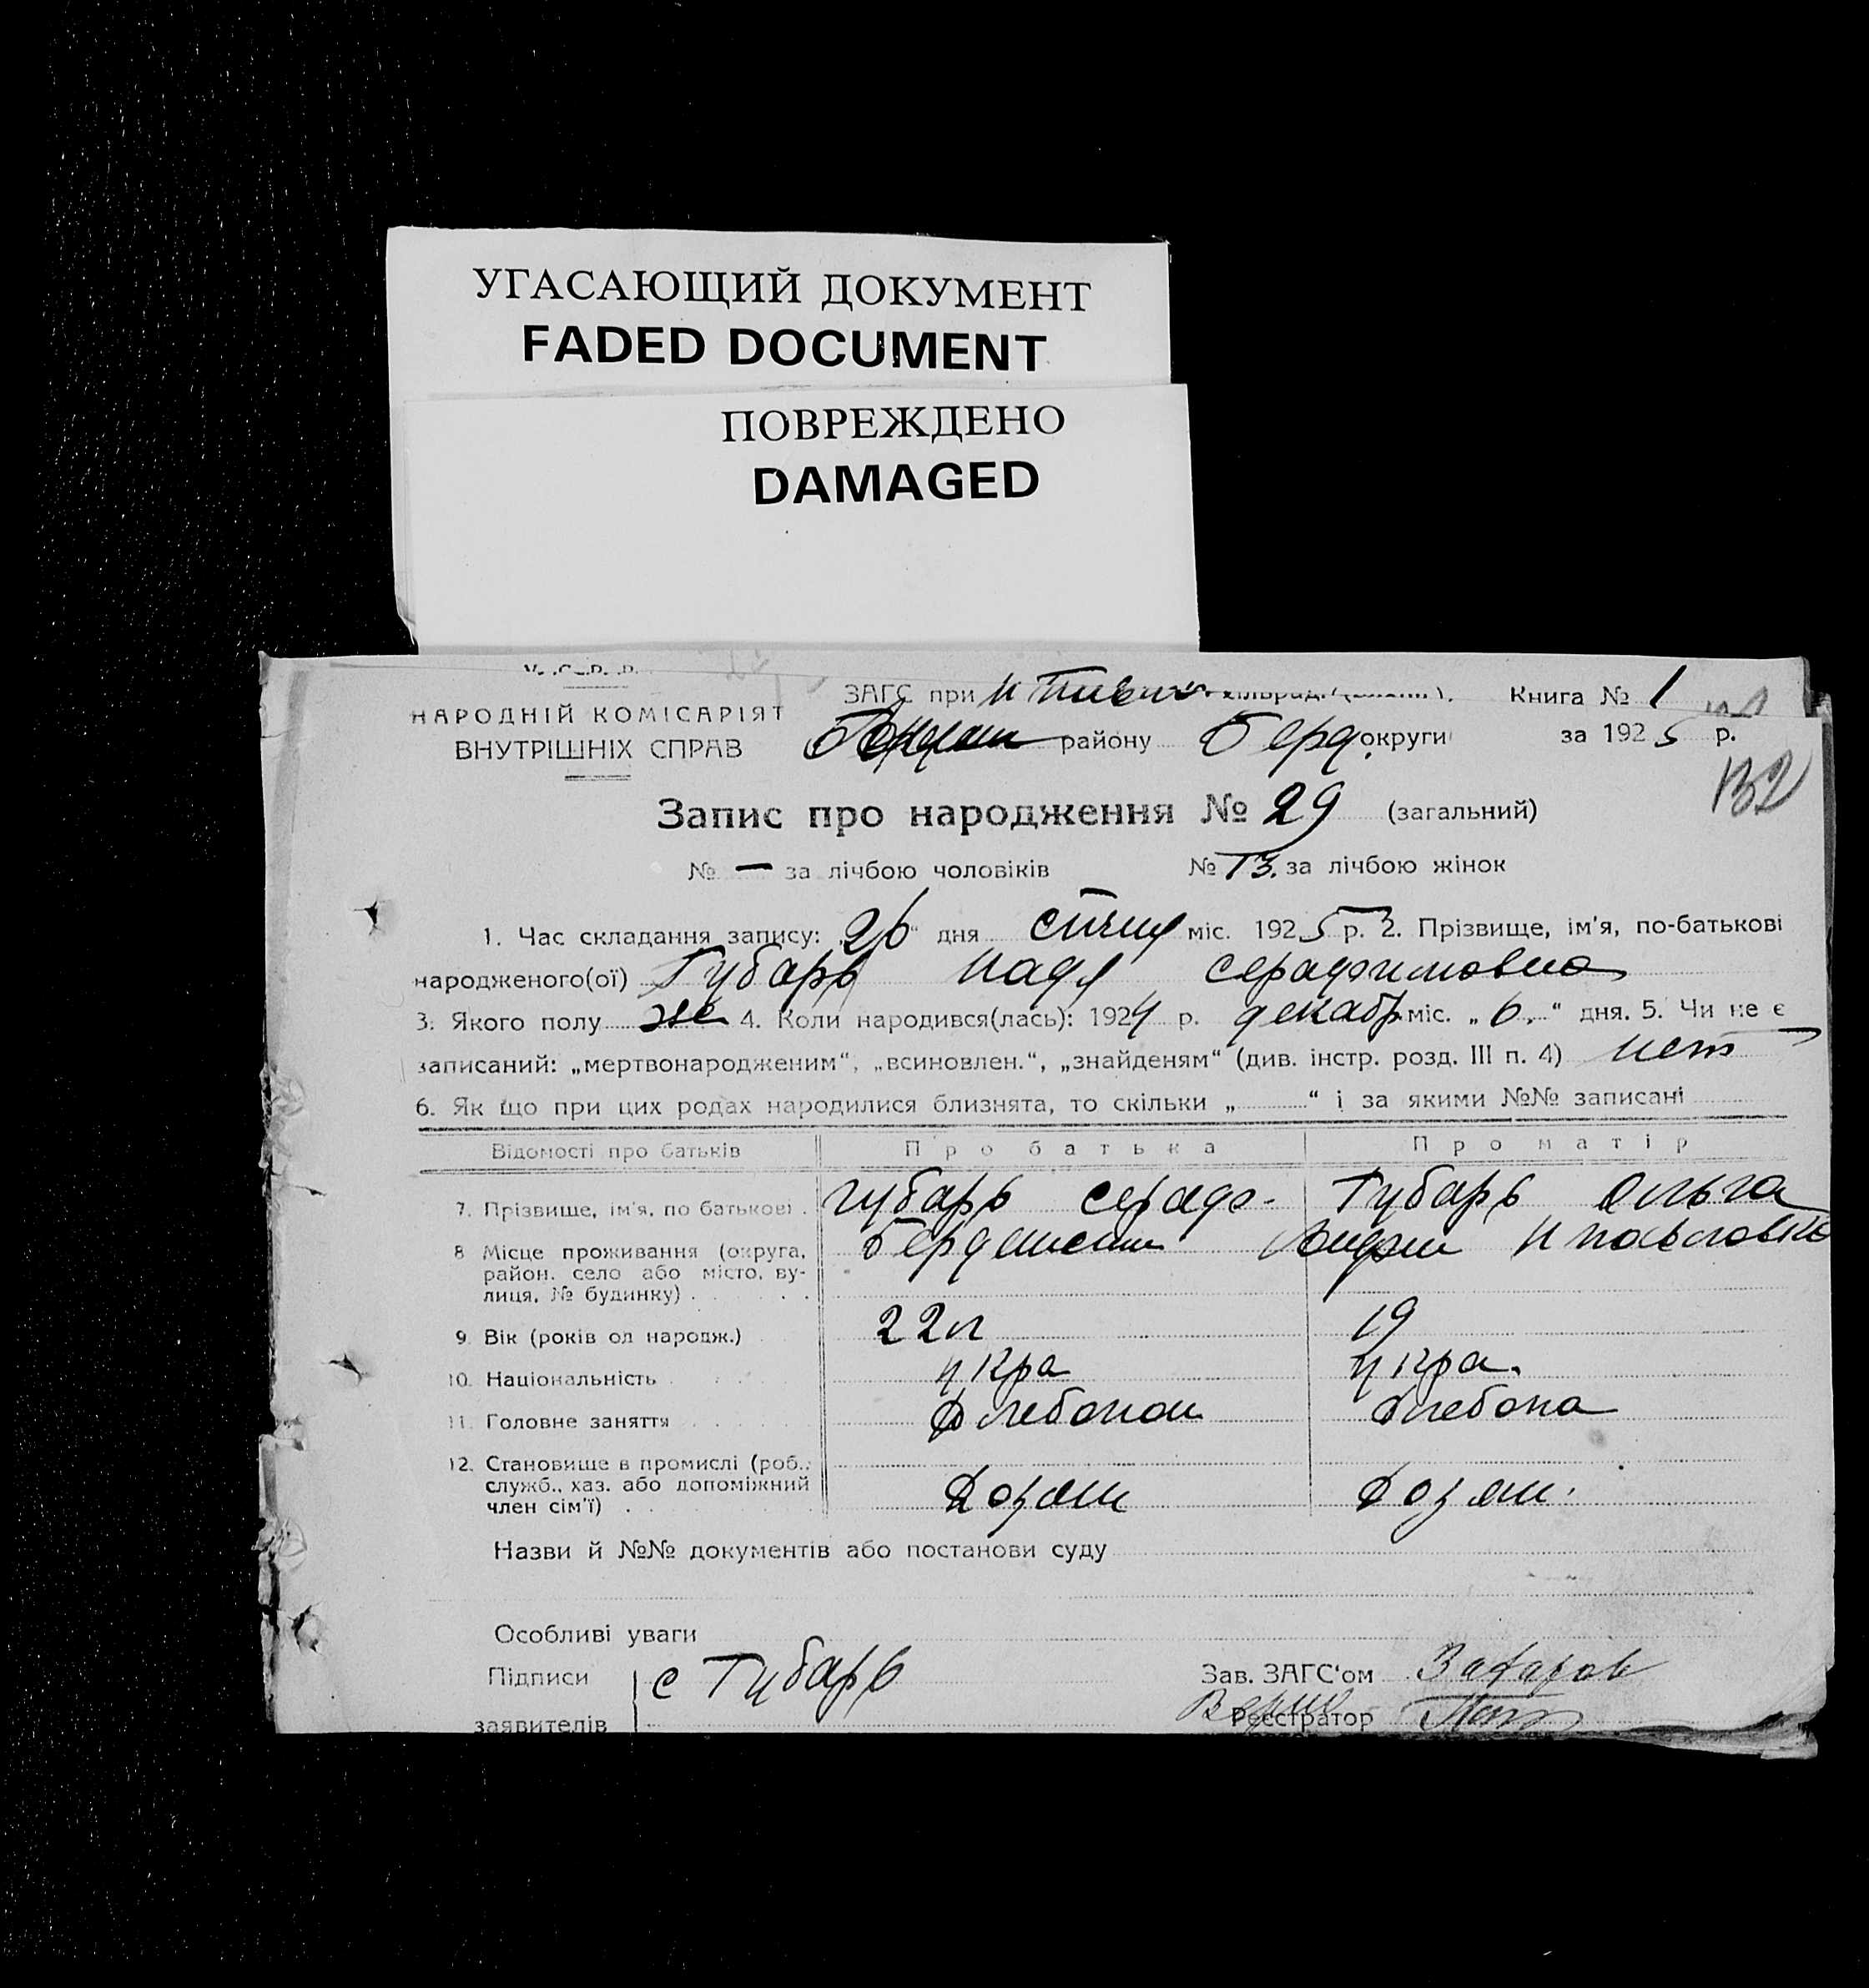 УГАСАЮЩИЙ ДОКУМЕНТ
FADED DOCUMENT
ПОВРЕЖДЕНО
DAMAGED
У. С. Р. Р.
НАРОДНІЙ КОМІСАРІЯТ
ВНУТРІШНІХ СПРАВ
ЗАГС при Книга № 1
району Берд. округи за 1925 р.
132
Запис про народження № 29 (загальний)
№ — за лічбою чоловіків № 13. за лічбою жінок
1. Час складання запису: „26“ дня січня міс. 1925 р. 2. Прізвище, ім'я, по-батькові
народженого(ої) Губарь Надя Серафимовна
3. Якого полу же 4. Коли народився(лась): 1924 р. декабр міс. „6.“ дня. 5. Чи не є
записаний: „мертвонародженим“, „всиновлен.“, „знайденям“ (див. інстр. розд. III п. 4) нет
6. Як що при цих родах народилися близнята, то скільки „.........“ і за якими №№ записані
Відомості про батьків Про батька Про матір
7. Прізвище, ім'я, по батькові . Губарь Сераф- Губарь Ольга
8 Місце проживання (округа,
район, село або місто, ву-
лиця, № будинку) . . . . .
9. Вік (років од народж.) 22 л 19
10. Національність . . . . укра укра.
11. Головне заняття . . . Хлебопаш Хлебопа
12. Становище в промислі (роб.,
служб., хаз. або допоміжний
член сім'ї) . . Хозяин Хозяин.
Назви й №№ документів або постанови суду
Особливі уваги
Підписи
заявителів
С Губарь
Зав. ЗАГС'ом Захаров
Реєстратор